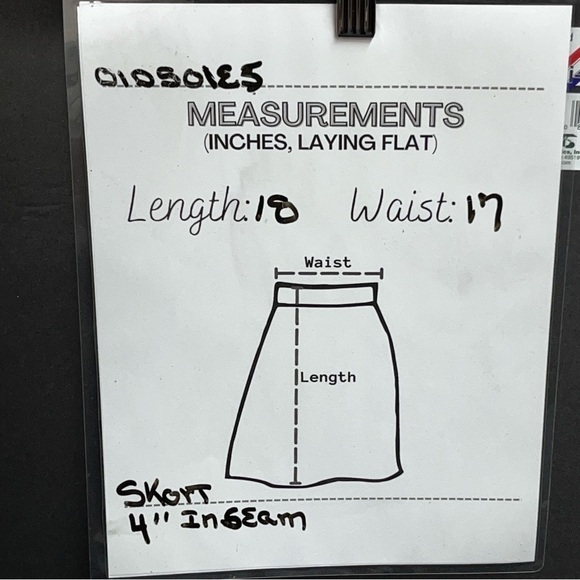 MEASUREMENTS
(INCHES, LAYING FLAT)
Length: 18 Waist: 17
Waist
Length
SKort
4" InSEam